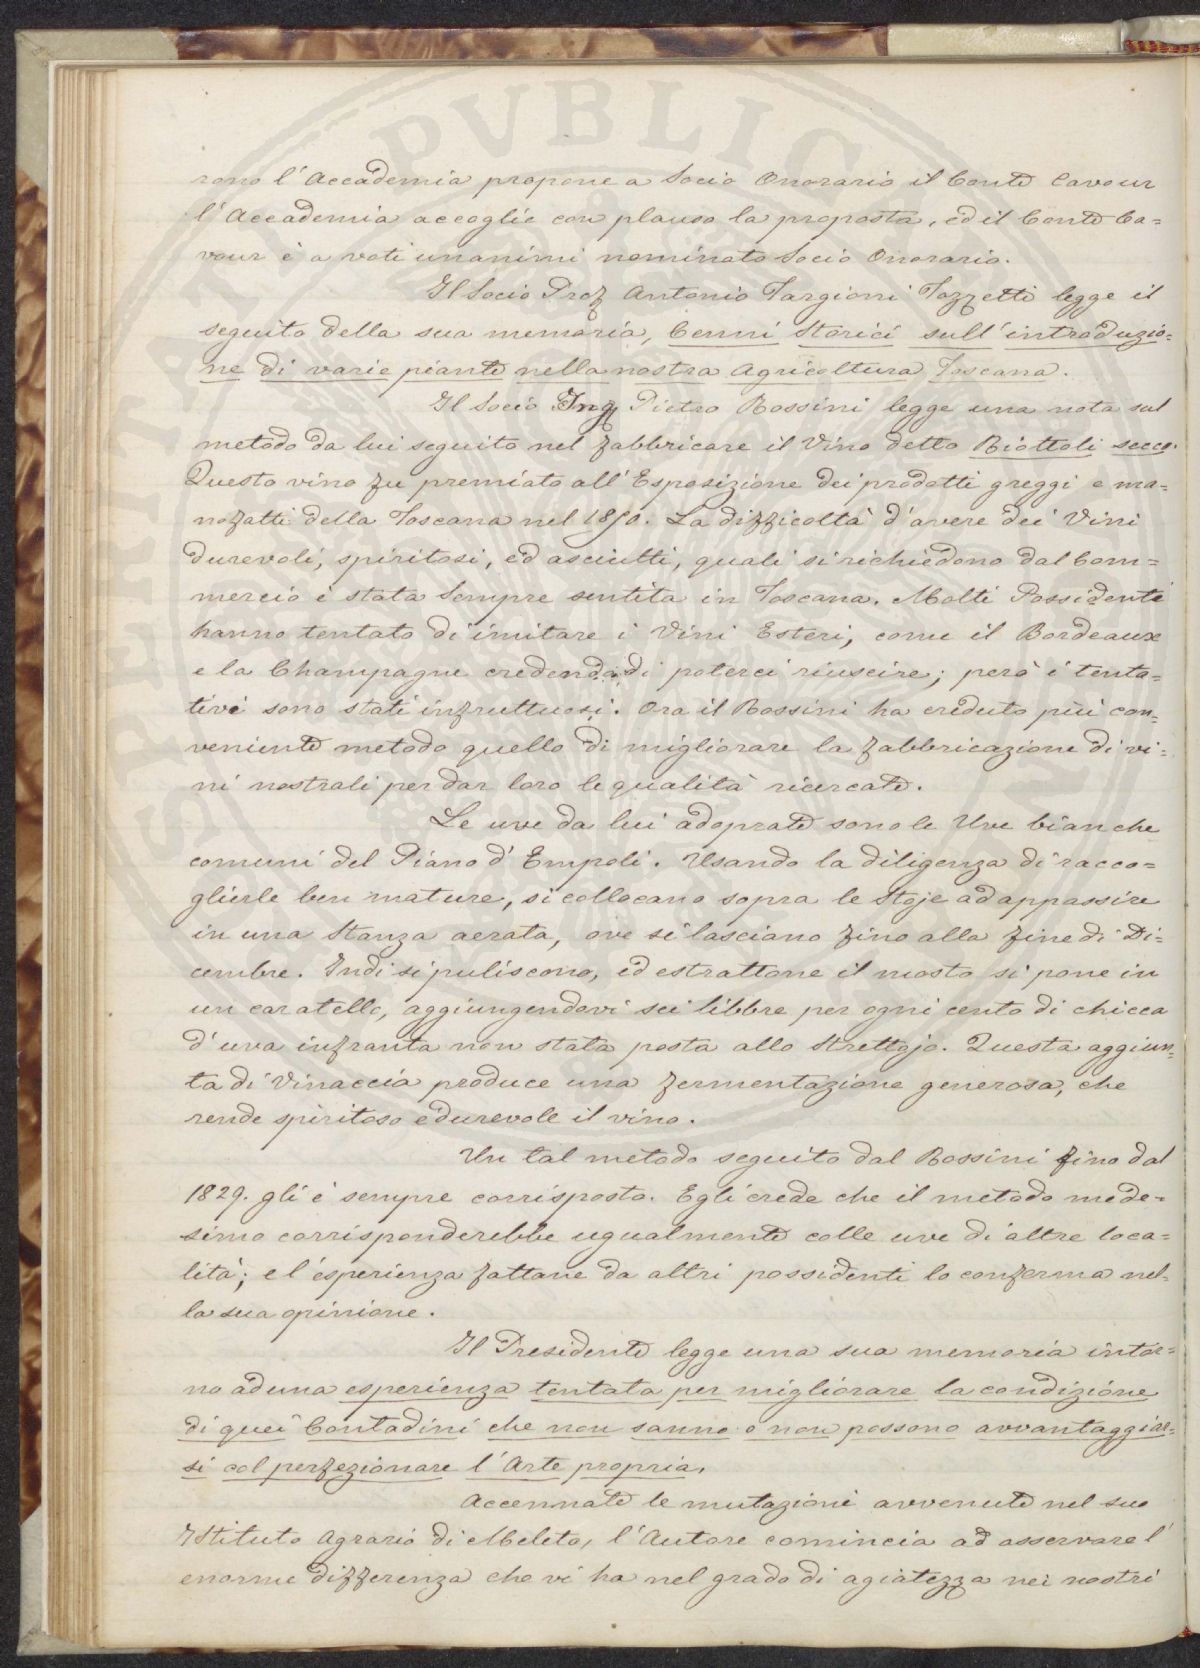 rono l'Accademia propone a Socio Onorario il Conte Cavour
l'Accademia accoglie con plauso la proposta, ed il Conte Ca=
vour è a voti unanimi nominato Socio Onorario.
Il Socio Prof Antonio Targioni Tozzetti legge il
seguito della sua memoria, Cenni Storici sull'introduzio=
ne di varie piante nella nostra Agricoltura Toscana.
Il Socio Ing Pietro Rossini legge una nota sul
metodo da lui seguito nel fabbricare il Vino detto Biottoli secco.
Questo vino fu premiato all'Esposizione dei prodotti greggi e ma=
nofatti della Toscana nel 1850. La difficoltà d'avere dei Vini
durevoli, spiritosi, ed asciutti, quali si richiedono dal Com=
mercio è stata sempre sentita in Toscana. Molti Possidenti
hanno tentato di imitare i Vini Esteri, come il Bordeaux
e la Champagne credendo di poterci riuscire; però i tenta=
tivi sono stati infruttuosi. Ora il Rossini ha creduto più con=
veniente metodo quello di migliorare la fabbricazione di vi=
ni nostrali per dar loro le qualità ricercate.
Le uve da lui adoprate sono le Uve bianche
comuni del Piano d'Empoli. Usando la diligenza di racco=
glierle ben mature, si collocano sopra le Stoje ad appassire
in una Stanza aerata, ove si lasciano fino alla fine di Di=
cembre. Indi si puliscono, ed estrattone il mosto si pone in
un caratello, aggiungendovi sei libbre per ogni cento di chicca
d'uva infranta non stata posta allo Strettojo. Questa aggiun=
ta di Vinaccia produce una fermentazione generosa, che
rende spiritoso e durevole il vino.
Un tal metodo seguito dal Rossini fino dal
1829. gli è sempre corrisposto. Egli crede che il metodo mede=
simo corrisponderebbe ugualmente colle uve di altre loca=
lità; e l'esperienza fattane da altri possidenti lo conferma nel=
la sua opinione.
Il Presidente legge una sua memoria intor=
no ad una esperienza tentata per migliorare la condizione
di quei Contadini che non sanno o non possono avvantaggiar=
si col perfezionare l'Arte propria.
Accennate le mutazioni avvenute nel suo
Istituto Agrario di Meleto, l'Autore comincia ad osservare l'
enorme differenza che vi ha nel grado di agiatezza nei nostri